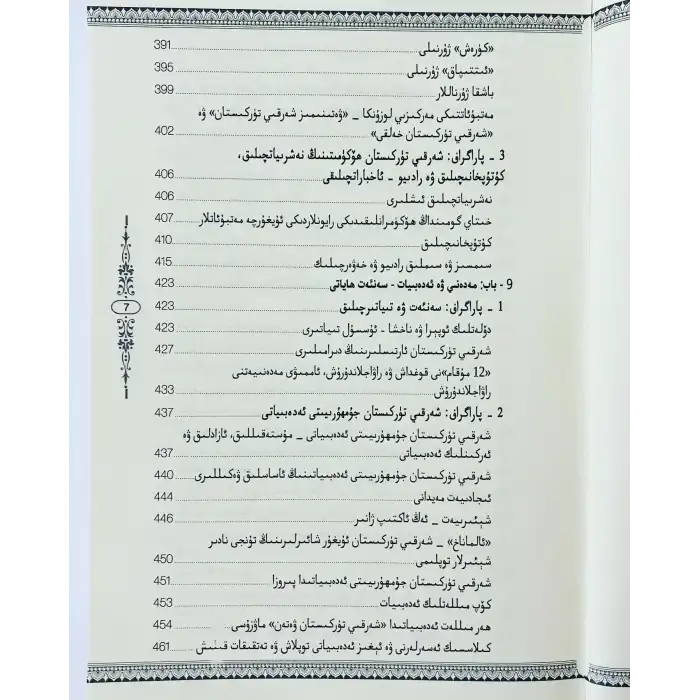 «كۈرەش» ژۇرنىلى 391
«ئىتتىپاق» ژۇرنىلى 395
باشقا ژۇرناللار 399
مەتبۇئاتتىكى مەركىزىي لوزۇنكا _ «ۋەتىنىمىز شەرقىي تۈركىستان» ۋە
«شەرقىي تۈركىستان خەلقى» 402
3 _ پاراگراف: شەرقىي تۈركىستان ھۆكۈمىتىنىڭ نەشرىياتچىلىق،
كۈتۈپخانىچىلىق ۋە رادىيو _ ئاخباراتچىلىقى 406
نەشرىياتچىلىق ئىشلىرى 406
خىتاي گومىنداڭ ھۆكۈمرانلىقىدىكى رايونلاردىكى ئۇيغۇرچە مەتبۇئاتلار 407
كۈتۈپخانىچىلىق 410
سىمسىز ۋە سىملىق رادىيو ۋە خەۋەرچىلىك 415
9 - باب: مەدەنىي ۋە ئەدەبىيات - سەنئەت ھاياتى 423
1 _ پاراگراف: سەنئەت ۋە تىياتىرچىلىق 423
دۆلەتلىك ئوپېرا ۋە ناخشا - ئۇسسۇل تىياتىرى 423
شەرقىي تۈركىستان ئارتىسلىرىنىڭ دىراملىرى 427
«12 مۇقام»نى قوغداش ۋە راۋاجلاندۇرۇش، ئاممىۋى مەدەنىيەتنى
راۋاجلاندۇرۇش 433
2 _ پاراگراف: شەرقىي تۈركىستان جۇمھۇرىيىتى ئەدەبىياتى 437
شەرقىي تۈركىستان جۇمھۇرىيىتى ئەدەبىياتى _ مۇستەقىللىق، ئازادلىق ۋە
ئەركىنلىك ئەدەبىياتى 437
شەرقىي تۈركىستان جۇمھۇرىيىتى ئەدەبىياتىنىڭ ئاساسلىق ۋەكىللىرى 440
ئىجادىيەت مەيدانى 444
شېئىرىيەت _ ئەڭ ئاكتىپ ژانىر 446
«ئالماناخ» _ شەرقىي تۈركىستان ئۇيغۇر شائىرلىرىنىڭ تۇنجى نادىر
شېئىرلار توپلىمى 450
شەرقىي تۈركىستان جۇمھۇرىيىتى ئەدەبىياتىدا پىروزا 451
كۆپ مىللەتلىك ئەدەبىيات 453
ھەر مىللەت ئەدەبىياتىدا «شەرقىي تۈركىستان ۋەتەن» ماۋزۇسى 454
كىلاسسىك ئەسەرلەرنى ۋە ئېغىز ئەدەبىياتى توپلاش ۋە تەتقىقات قىلىش 461
7